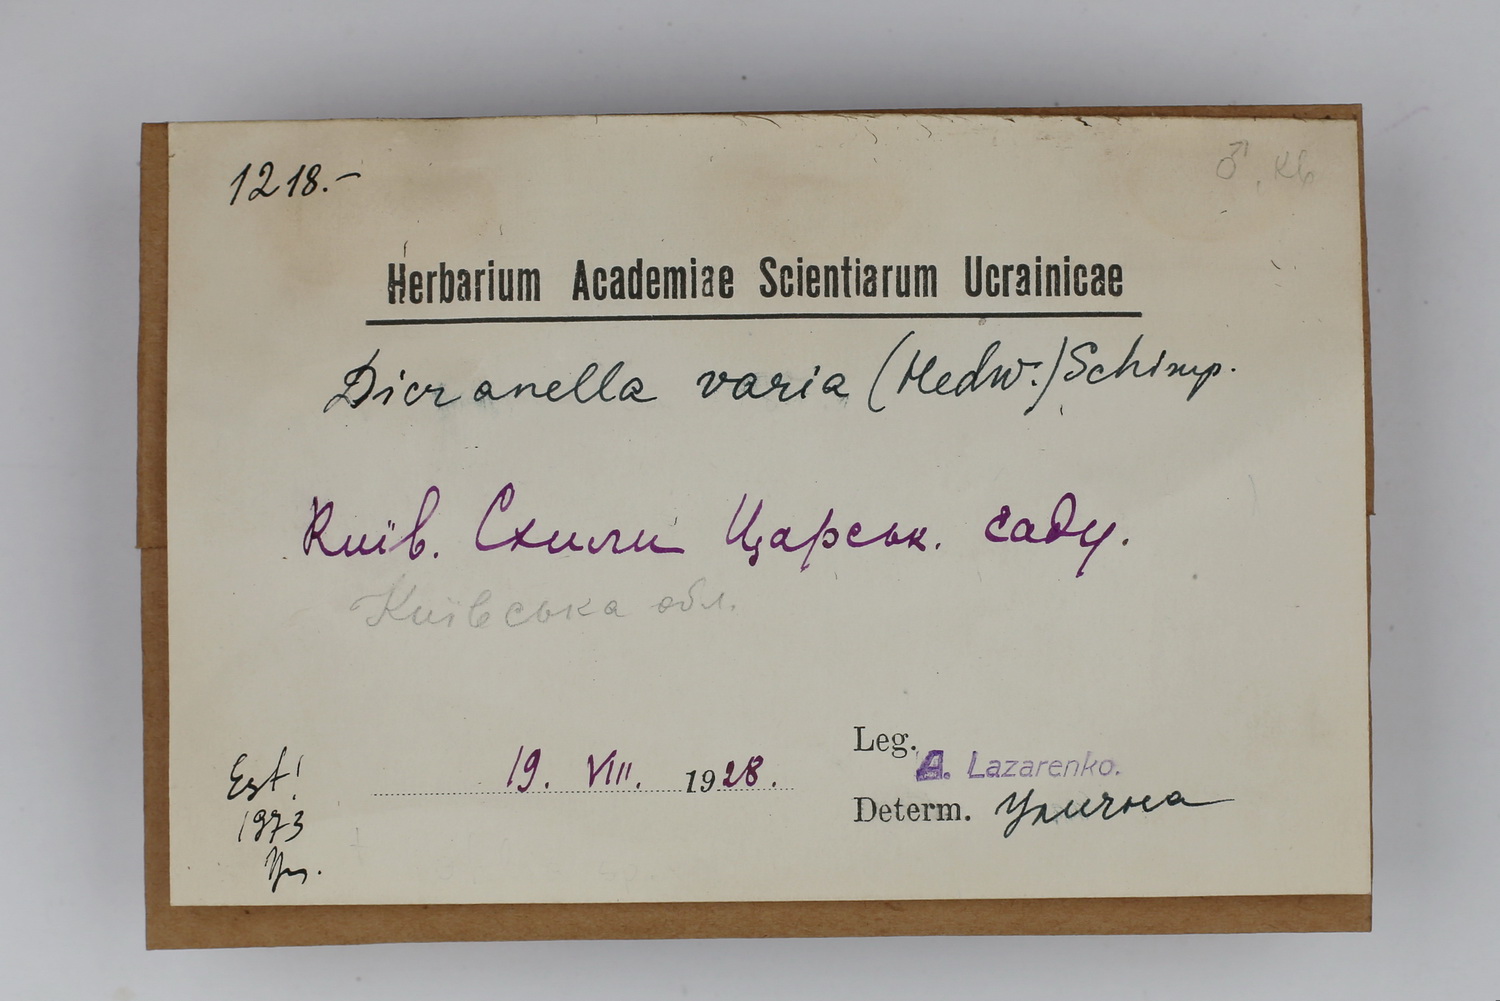 1218.–
♂, Кв
Herbarium Academiae Scientiarum Ucrainicae
Dicranella varia (Hedw.) Schimp.
Київ. Схили Царськ. саду.
Київська обл.
Leg. A. Lazarenko.
19. VIII. 1928.
Determ. Улична
Est!
1973